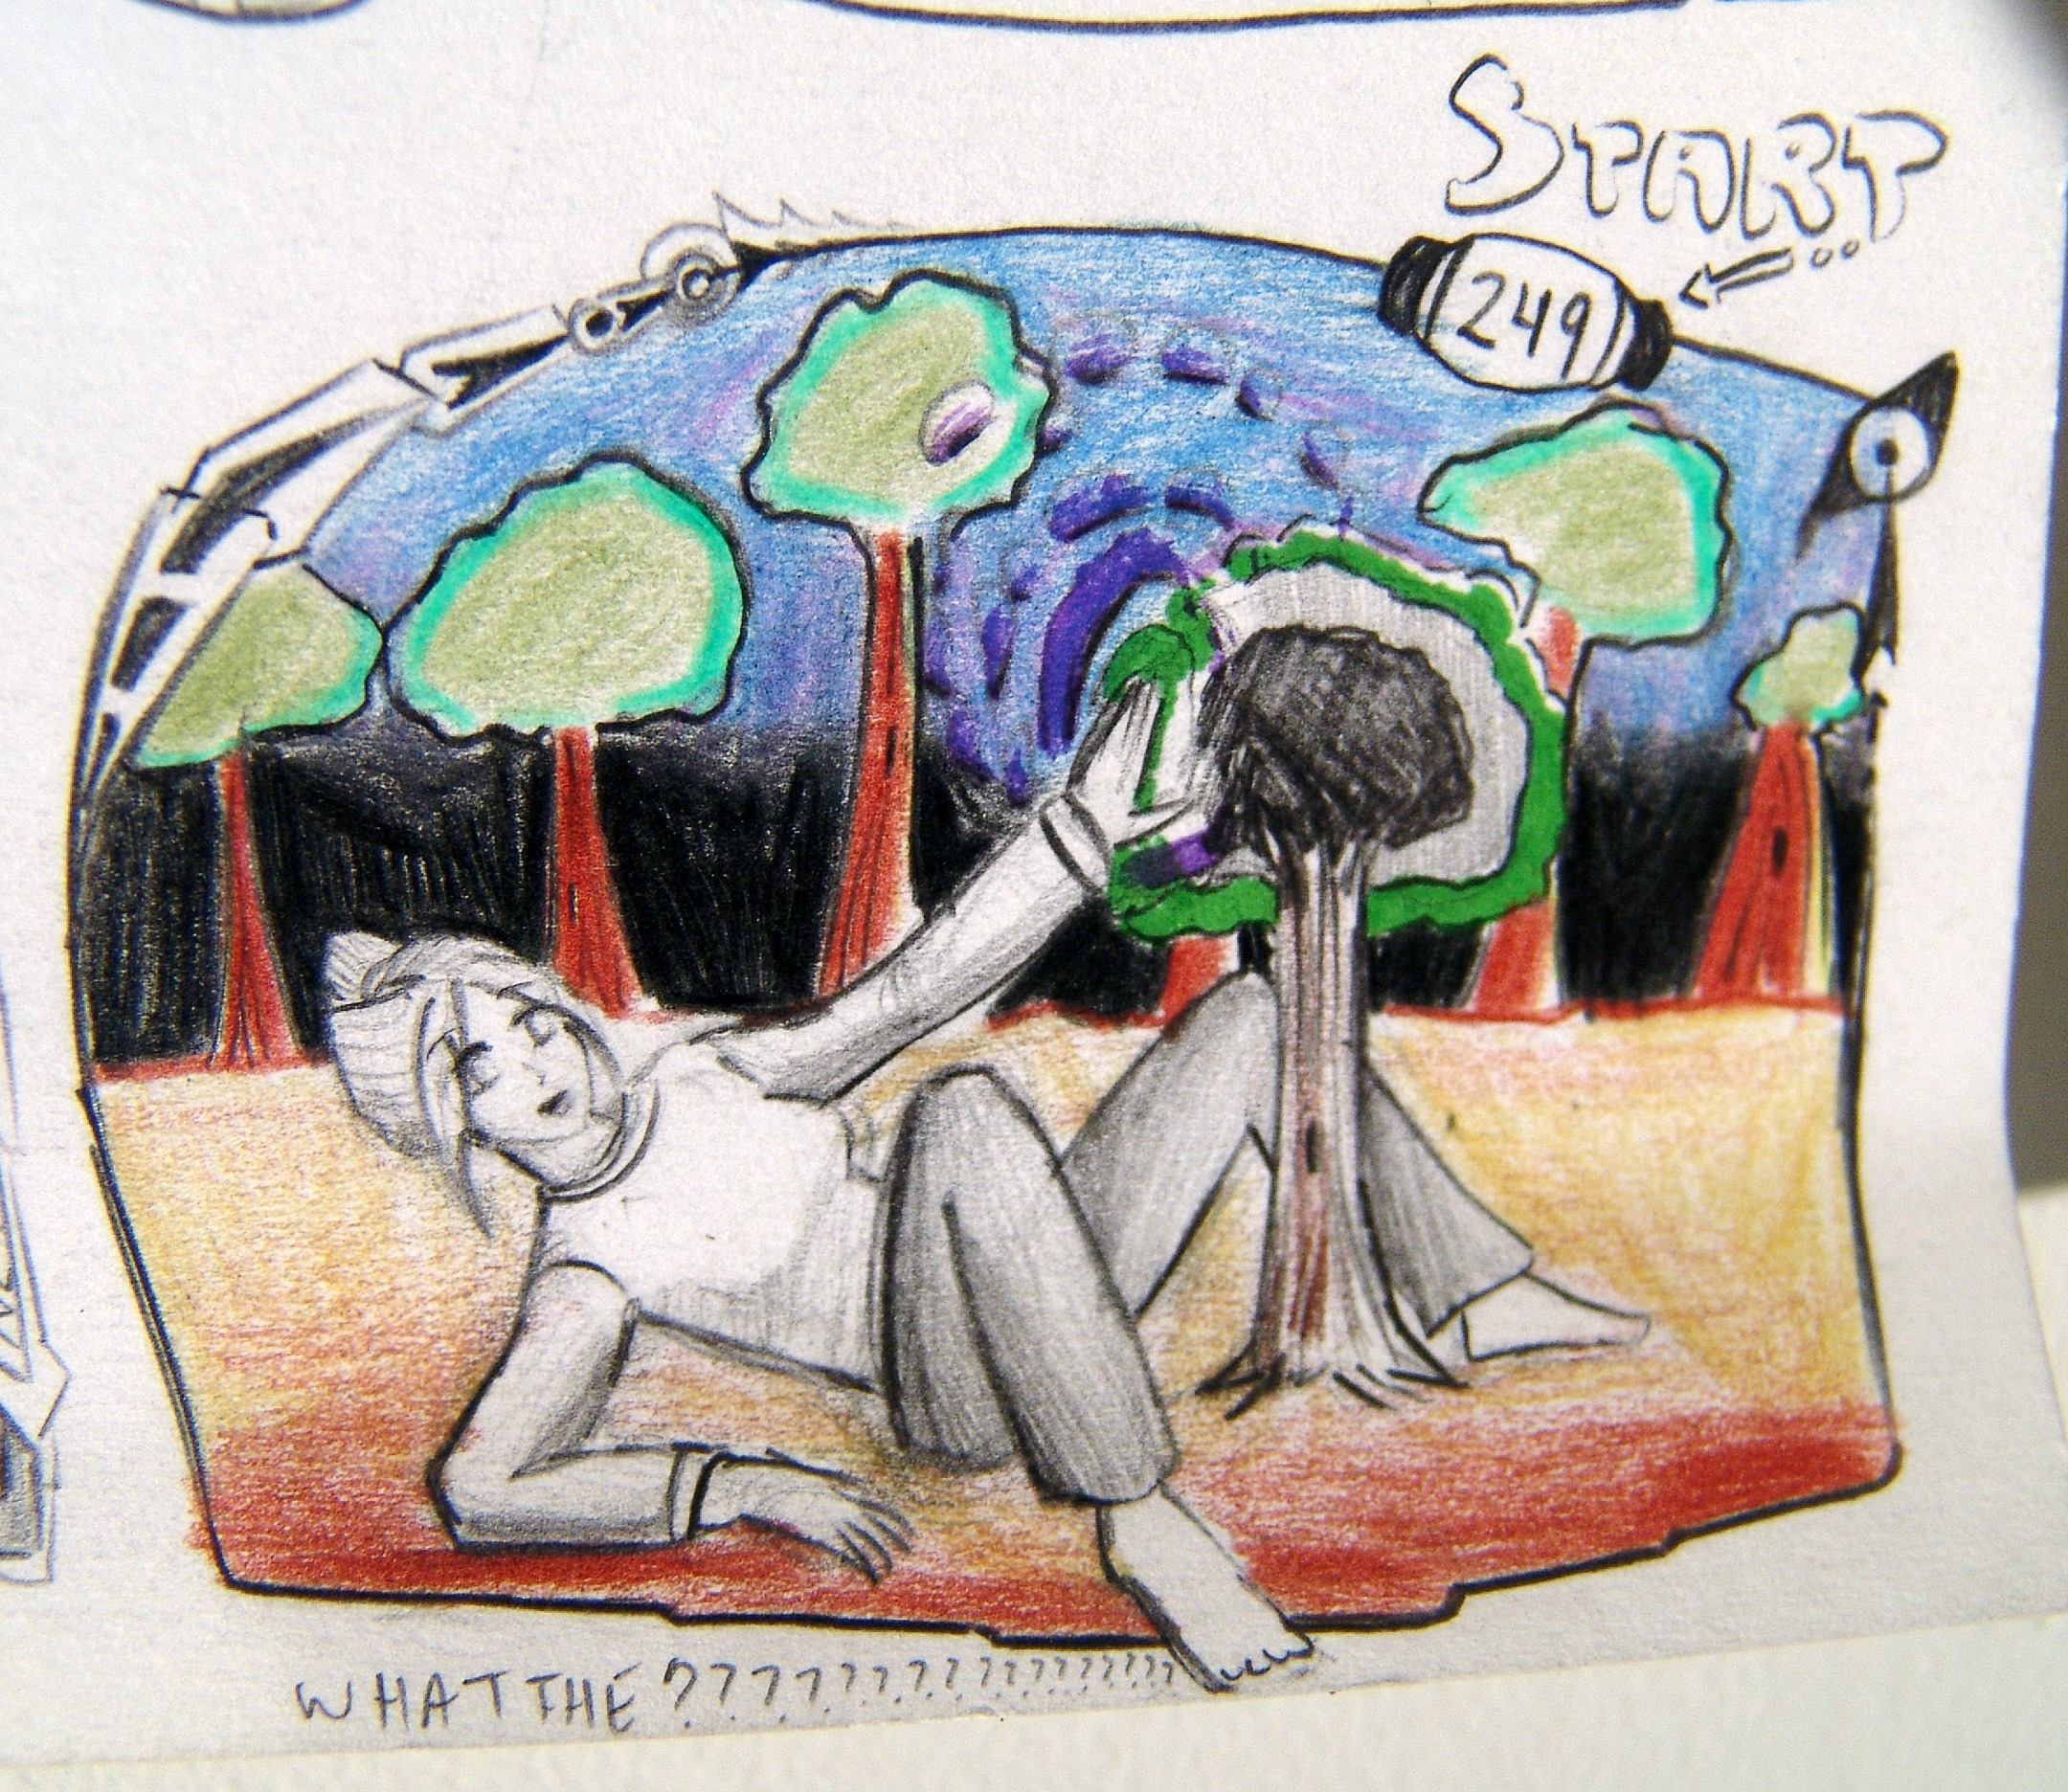 START
249
WHAT THE ???????????????????